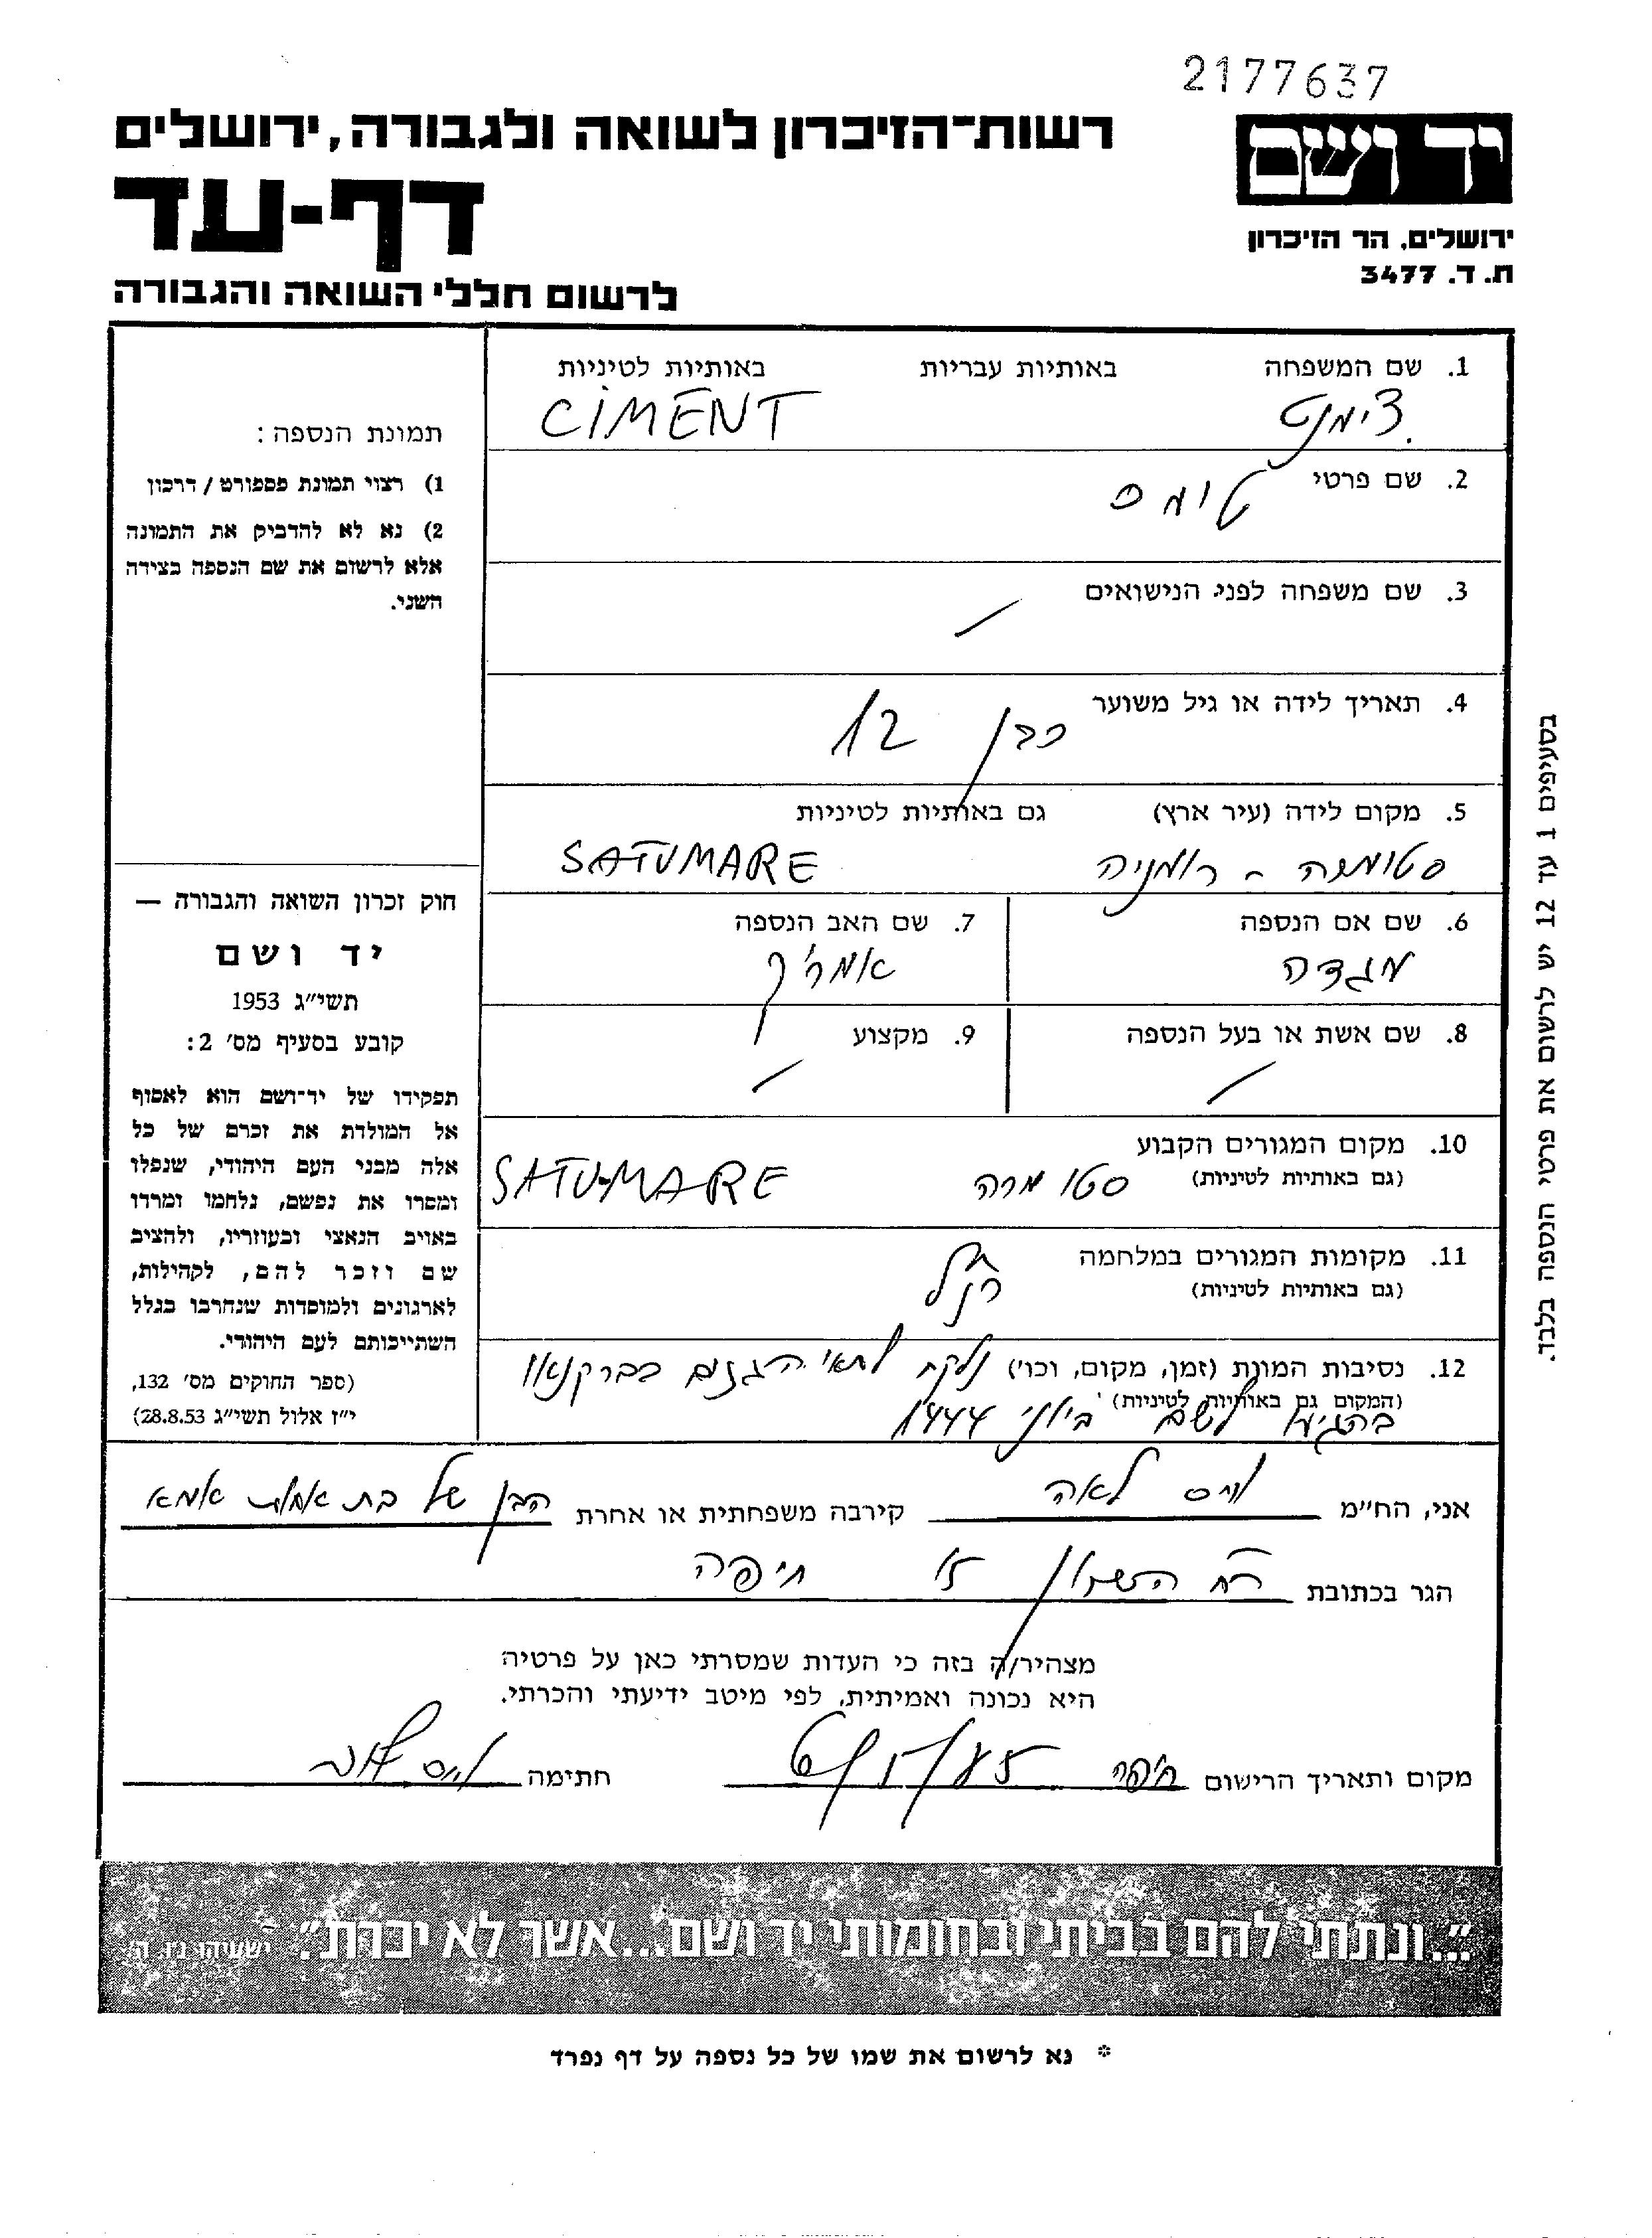 2177637
יד ושם
רשות־הזיכרון לשואה ולגבורה, ירושלים
דף-עד
ירושלים, הר הזיכרון
ת. ד. 3477
לרשום חללי השואה והגבורה
1. שם המשפחה באותיות עבריות באותיות לטיניות
צימנט CIMENT
2. שם פרטי טומס
3. שם משפחה לפני הנישואים
4. תאריך לידה או גיל משוער כבן 12
5. מקום לידה (עיר ארץ) גם באותיות לטיניות
סטומרה - רומניה SATUMARE
6. שם אם הנספה 7. שם האב הנספה
מגדה אמריך
8. שם אשת או בעל הנספה 9. מקצוע
10. מקום המגורים הקבוע
(גם באותיות לטיניות) סטו מרה SATU-MARE
11. מקומות המגורים במלחמה
(גם באותיות לטיניות) כנ"ל
12. נסיבות המוות (זמן, מקום, וכו') נלקח לתאי הגזים בברקנאו
(המקום גם באותיות לטיניות)
בהגיעו לשם ביוני 1944
תמונת הנספה:
1) רצוי תמונת פספורט / דרכון
2) נא לא להדביק את התמונה
אלא לרשום את שם הנספה בצידה
השני.
חוק זכרון השואה והגבורה —
יד ושם
תשי"ג 1953
קובע בסעיף מס' 2:
תפקידו של יד־ושם הוא לאסוף
אל המולדת את זכרם של כל
אלה מבני העם היהודי, שנפלו
ומסרו את נפשם, נלחמו ומרדו
באויב הנאצי ובעוזריו, ולהציב
שם וזכר להם, לקהילות,
לארגונים ולמוסדות שנחרבו בגלל
השתייכותם לעם היהודי.
(ספר החוקים מס' 132,
י"ז אלול תשי"ג 28.8.53)
בסעיפים 1 עד 12 יש לרשום את פרטי הנספה בלבד.
אני, הח"מ לאה קירבה משפחתית או אחרת הבן של בת אחות אמא
הגר בכתובת חיפה
מצהיר/ה בזה כי העדות שמסרתי כאן על פרטיה
היא נכונה ואמיתית, לפי מיטב ידיעתי והכרתי.
מקום ותאריך הרישום חיפה חתימה
"...ונתתי להם בביתי ובחומותי יד ושם...אשר לא יכרת". ישעיהו נו, ה'
* נא לרשום את שמו של כל נספה על דף נפרד